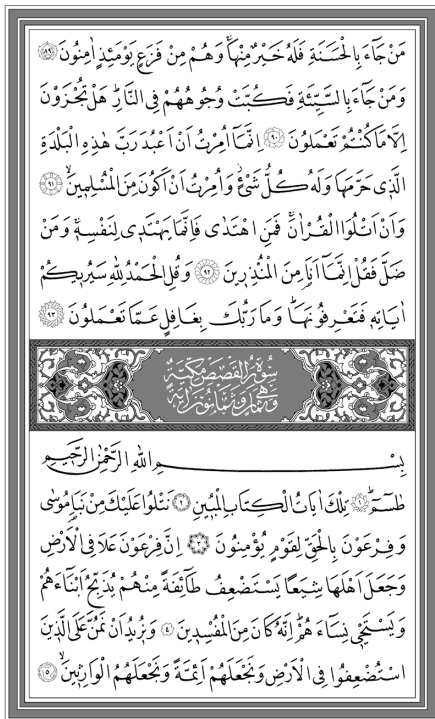 مَنْ جَٓاءَ بِالْحَسَنَةِ فَلَهُ خَيْرٌ مِنْهَاۚ وَهُمْ مِنْ فَزَعٍ يَوْمَئِذٍ اٰمِنُونَ ﴿٨٩﴾
وَمَنْ جَٓاءَ بِالسَّيِّئَةِ فَكُبَّتْ وُجُوهُهُمْ فِى النَّارِۜ هَلْ تُجْزَوْنَ
اِلَّا مَا كُنْتُمْ تَعْمَلُونَ ﴿٩٠﴾ اِنَّمَٓا اُمِرْتُ اَنْ اَعْبُدَ رَبَّ هٰذِهِ الْبَلْدَةِ
الَّذ۪ى حَرَّمَهَا وَلَهُ كُلُّ شَىْءٍۘ وَاُمِرْتُ اَنْ اَكُونَ مِنَ الْمُسْلِم۪ينَۙ ﴿٩١﴾
وَاَنْ اَتْلُوَا الْقُرْاٰنَۚ فَمَنِ اهْتَدٰى فَاِنَّمَا يَهْتَد۪ى لِنَفْسِه۪ۚ وَمَنْ
ضَلَّ فَقُلْ اِنَّمَٓا اَنَا۬ مِنَ الْمُنْذِر۪ينَ ﴿٩٢﴾ وَقُلِ الْحَمْدُ لِلّٰهِ سَيُر۪يكُمْ
اٰيَاتِه۪ فَتَعْرِفُونَهَاۜ وَمَا رَبُّكَ بِغَافِلٍ عَمَّا تَعْمَلُونَ ﴿٩٣﴾
سُورَةُ الْقَصَصِ مَكِّيَّةٌ
وَهِىَ ثَمَانٌ وَثَمَانُونَ اٰيَةً
بِسْمِ اللّٰهِ الرَّحْمٰنِ الرَّح۪يمِ
طٰسٓمٓ ﴿١﴾ تِلْكَ اٰيَاتُ الْكِتَابِ الْمُب۪ينِ ﴿٢﴾ نَتْلُوا عَلَيْكَ مِنْ نَبَاِ مُوسٰى
وَفِرْعَوْنَ بِالْحَقِّ لِقَوْمٍ يُؤْمِنُونَ ﴿٣﴾ اِنَّ فِرْعَوْنَ عَلَا فِى الْاَرْضِ
وَجَعَلَ اَهْلَهَا شِيَعًا يَسْتَضْعِفُ طَٓائِفَةً مِنْهُمْ يُذَبِّحُ اَبْنَٓاءَهُمْ
وَيَسْتَحْي۪ نِسَٓاءَهُمْۜ اِنَّهُ كَانَ مِنَ الْمُفْسِد۪ينَ ﴿٤﴾ وَنُر۪يدُ اَنْ نَمُنَّ عَلَى الَّذ۪ينَ
اسْتُضْعِفُوا فِى الْاَرْضِ وَنَجْعَلَهُمْ اَئِمَّةً وَنَجْعَلَهُمُ الْوَارِث۪ينَۙ ﴿٥﴾